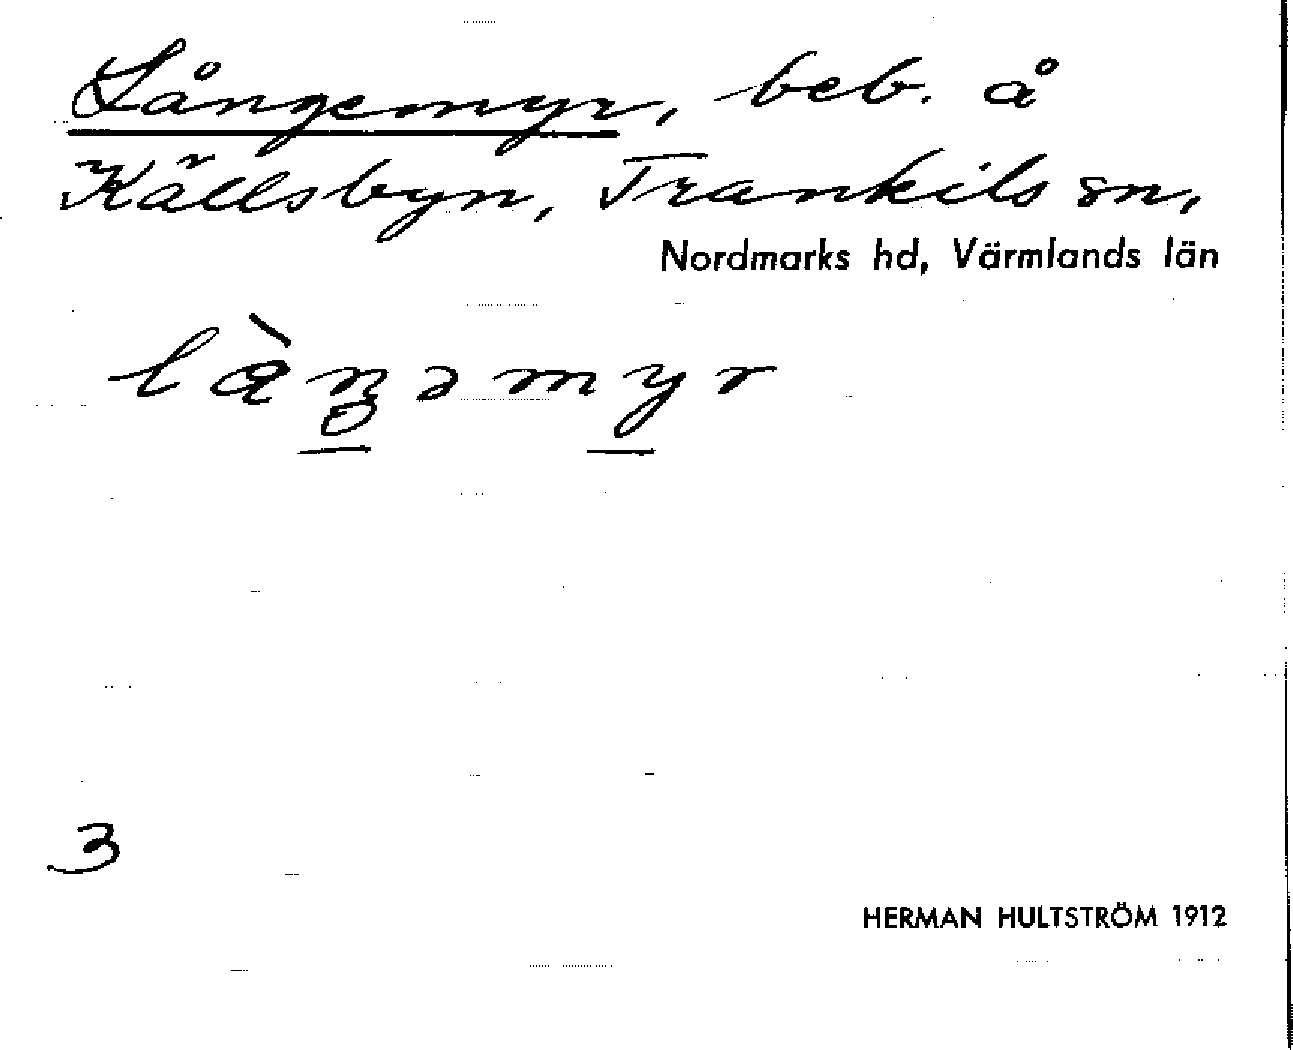 Långemyr, beb. å
Källsbyn, Trankils sn,
Nordmarks hd, Värmlands län
3
HERMAN HULTSTRÖM 1912